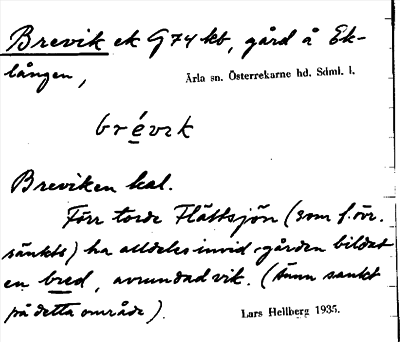 Brevik ek G74 kb, gård å Ek-
lången,
Ärla sn. Österrekarne hd. Sdml. l.
brévik
Breviken kal.
Förr torde Flättsjön (som f. övr.
sänkts) ha alldeles invid gården bildat
en bred, avrundad vik. (Ännu sankt
på detta område).
Lars Hellberg 1935.